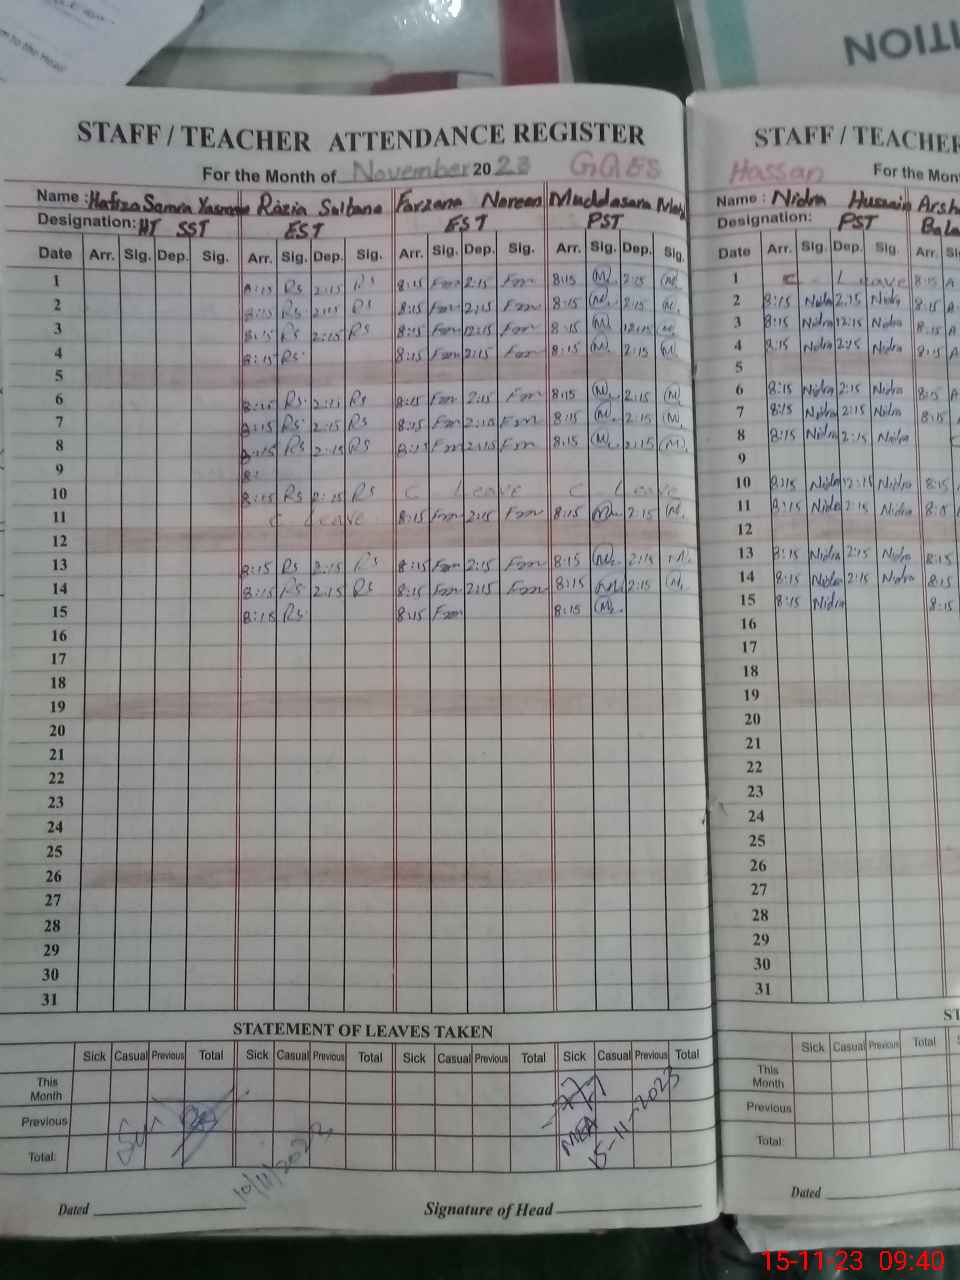 m to the Head
NOITI
STAFF / TEACHER ATTENDANCE REGISTER
For the Month of November 20 23 GGES
Name : Hafiza Samra Yasmeen Razia Sultana Farzana Noreen Muddasara
Designation: HT SST EST EST PST
Date Arr. Sig. Dep. Sig. Arr. Sig. Dep. Sig. Arr. Sig. Dep. Sig. Arr. Sig. Dep. Sig.
1 8:15 Rs 2:15 Rs 8:15 Fam 2:15 Fam 8:15 M. 2:15 M.
2 8:15 Rs 2:15 Rs 8:15 Fam 2:15 Fam 8:15 M. 2:15 M.
3 8:15 Rs 2:15 Rs 8:15 Fam 12:15 Fam 8:15 M 12:15 M.
4 8:15 Rs 8:15 Fam 2:15 Fam 8:15 M. 2:15 M.
5
6 8:15 Rs 2:15 Rs 8:15 Fam 2:15 Fam 8:15 M. 2:15 M.
7 8:15 Rs 2:15 Rs 8:15 Fam 2:15 Fam 8:15 M. 2:15 M.
8 8:15 Rs 2:15 Rs 8:15 Fam 2:15 Fam 8:15 M. 2:15 M.
9 8:
10 8:15 Rs 2:15 Rs C Leave C Leave
11 C Leave 8:15 Fam 2:15 Fam 8:15 M. 2:15 M.
12
13 8:15 Rs 2:15 Rs 8:15 Fam 2:15 Fam 8:15 M. 2:15 M.
14 8:15 Rs 2:15 Rs 8:15 Fam 2:15 Fam 8:15 M. 2:15 M.
15 8:15 Rs 8:15 Fam 8:15 M.
16
17
18
19
20
21
22
23
24
25
26
27
28
29
30
31
STATEMENT OF LEAVES TAKEN
Sick Casual Previous Total Sick Casual Previous Total Sick Casual Previous Total Sick Casual Previous Total
This Month
Previous
Total:
MEA
15-11-2023
10/11/2023
Dated Signature of Head
STAFF / TEACHER
Hassan For the Mon
Name : Nidra Husnain Arsh
Designation: PST
Date Arr. Sig. Dep. Sig. Arr.
1 C Leave 8:15 A
2 8:15 Nidra 2:15 Nidra 8:15 A
3 8:15 Nidra 12:15 Nidra 8:15 A
4 8:15 Nidra 2:15 Nidra 8:15 A
5
6 8:15 Nidra 2:15 Nidra 8:15 A
7 8:15 Nidra 2:15 Nidra 8:15
8 8:15 Nidra 2:15 Nidra C
9
10 8:15 Nidra 12:15 Nidra 8:15
11 8:15 Nidra 2:15 Nidra 8:15
12
13 8:15 Nidra 2:15 Nidra 8:15
14 8:15 Nidra 2:15 Nidra 8:15
15 8:15 Nidra 8:15
16
17
18
19
20
21
22
23
24
25
26
27
28
29
30
31
ST
Sick Casual Previous Total
This Month
Previous
Total:
Dated
15-11-23 09:40